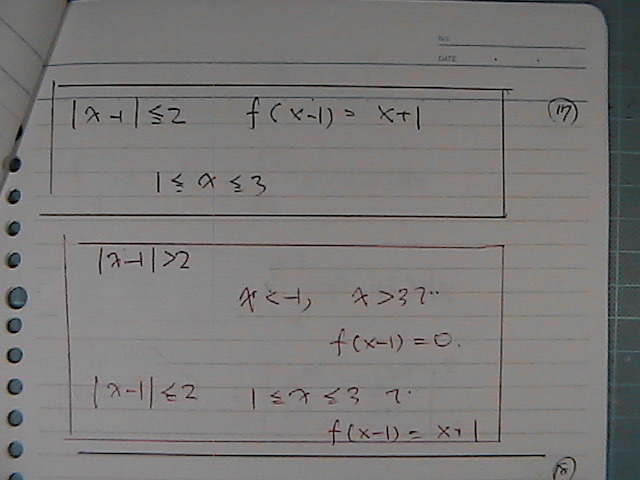 NO.
DATE
|x-1|≦2 f(x-1)= x+1 (17)
1≦ x ≦3
|x-1|>2
x<-1, x>3で
f(x-1)=0.
|x-1|≦2 1≦x≦3 で
f(x-1)= x+1